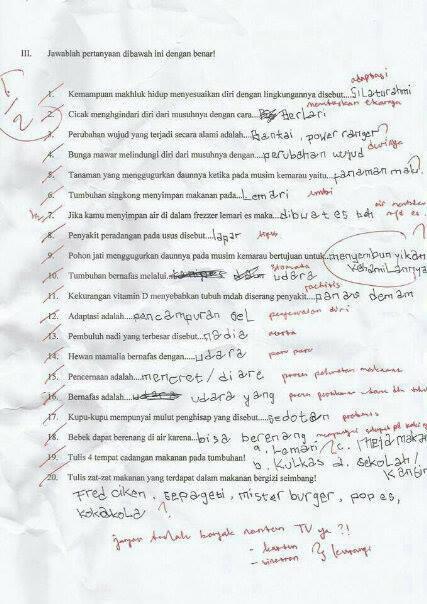 III. Jawablah pertanyaan dibawah ini dengan benar!
1/2
adaptasi
1. Kemampuan makhluk hidup menyesuaikan diri dengan lingkungannya disebut....Silaturahmi
memutuskan ekornya
2. Cicak mengghindari diri dari musuhnya dengan cara....Berlari
3. Perubahan wujud yang terjadi secara alami adalah....Bantai, power ranger?
durinya
4. Bunga mawar melindungi diri dari musuhnya dengan....perubahan wujud
5. Tanaman yang menggugurkan daunnya ketika pada musim kemarau yaitu....tanaman malu.
6. Tumbuhan singkong menyimpan makanan pada....Lemari umbi
7. Jika kamu menyimpan air di dalam frezzer lemari es maka....dibuat es teh
8. Penyakit peradangan pada usus disebut....lapar tipus
9. Pohon jati menggugurkan daunnya pada musim kemarau bertujuan untuk....menyembunyikan kehamilannya
stomata
10. Tumbuhan bernafas melalui....udara
11. Kekurangan vitamin D menyebabkan tubuh mdah diserang penyakit....panas demam
12. Adaptasi adalah....pencampuran Gel penyesuaian diri
13. Pembuluh nadi yang terbesar disebut....nadia aorta
14. Hewan mamalia bernafas dengan.....udara paru paru
15. Pencernaan adalah....mencret/diare proses pelumatan makanan
16. Bernafas adalah....udara yang proses
17. Kupu-kupu mempunyai mulut penghisap yang disebut....sedotan probosis
18. Bebek dapat berenang di air karena....bisa berenang mempunyai
19. Tulis 4 tempat cadangan makanan pada tumbuhan! a. Lemari c. Meja makan
b. Kulkas d. sekolah/kantin
20. Tulis zat-zat makanan yang terdapat dalam makanan bergizi seimbang!
Fred ciken, sepageti, mister burger, pop es,
kokakola ?
jangan terlalu banyak nonton TV ya ?!
- kartun
- sinetron